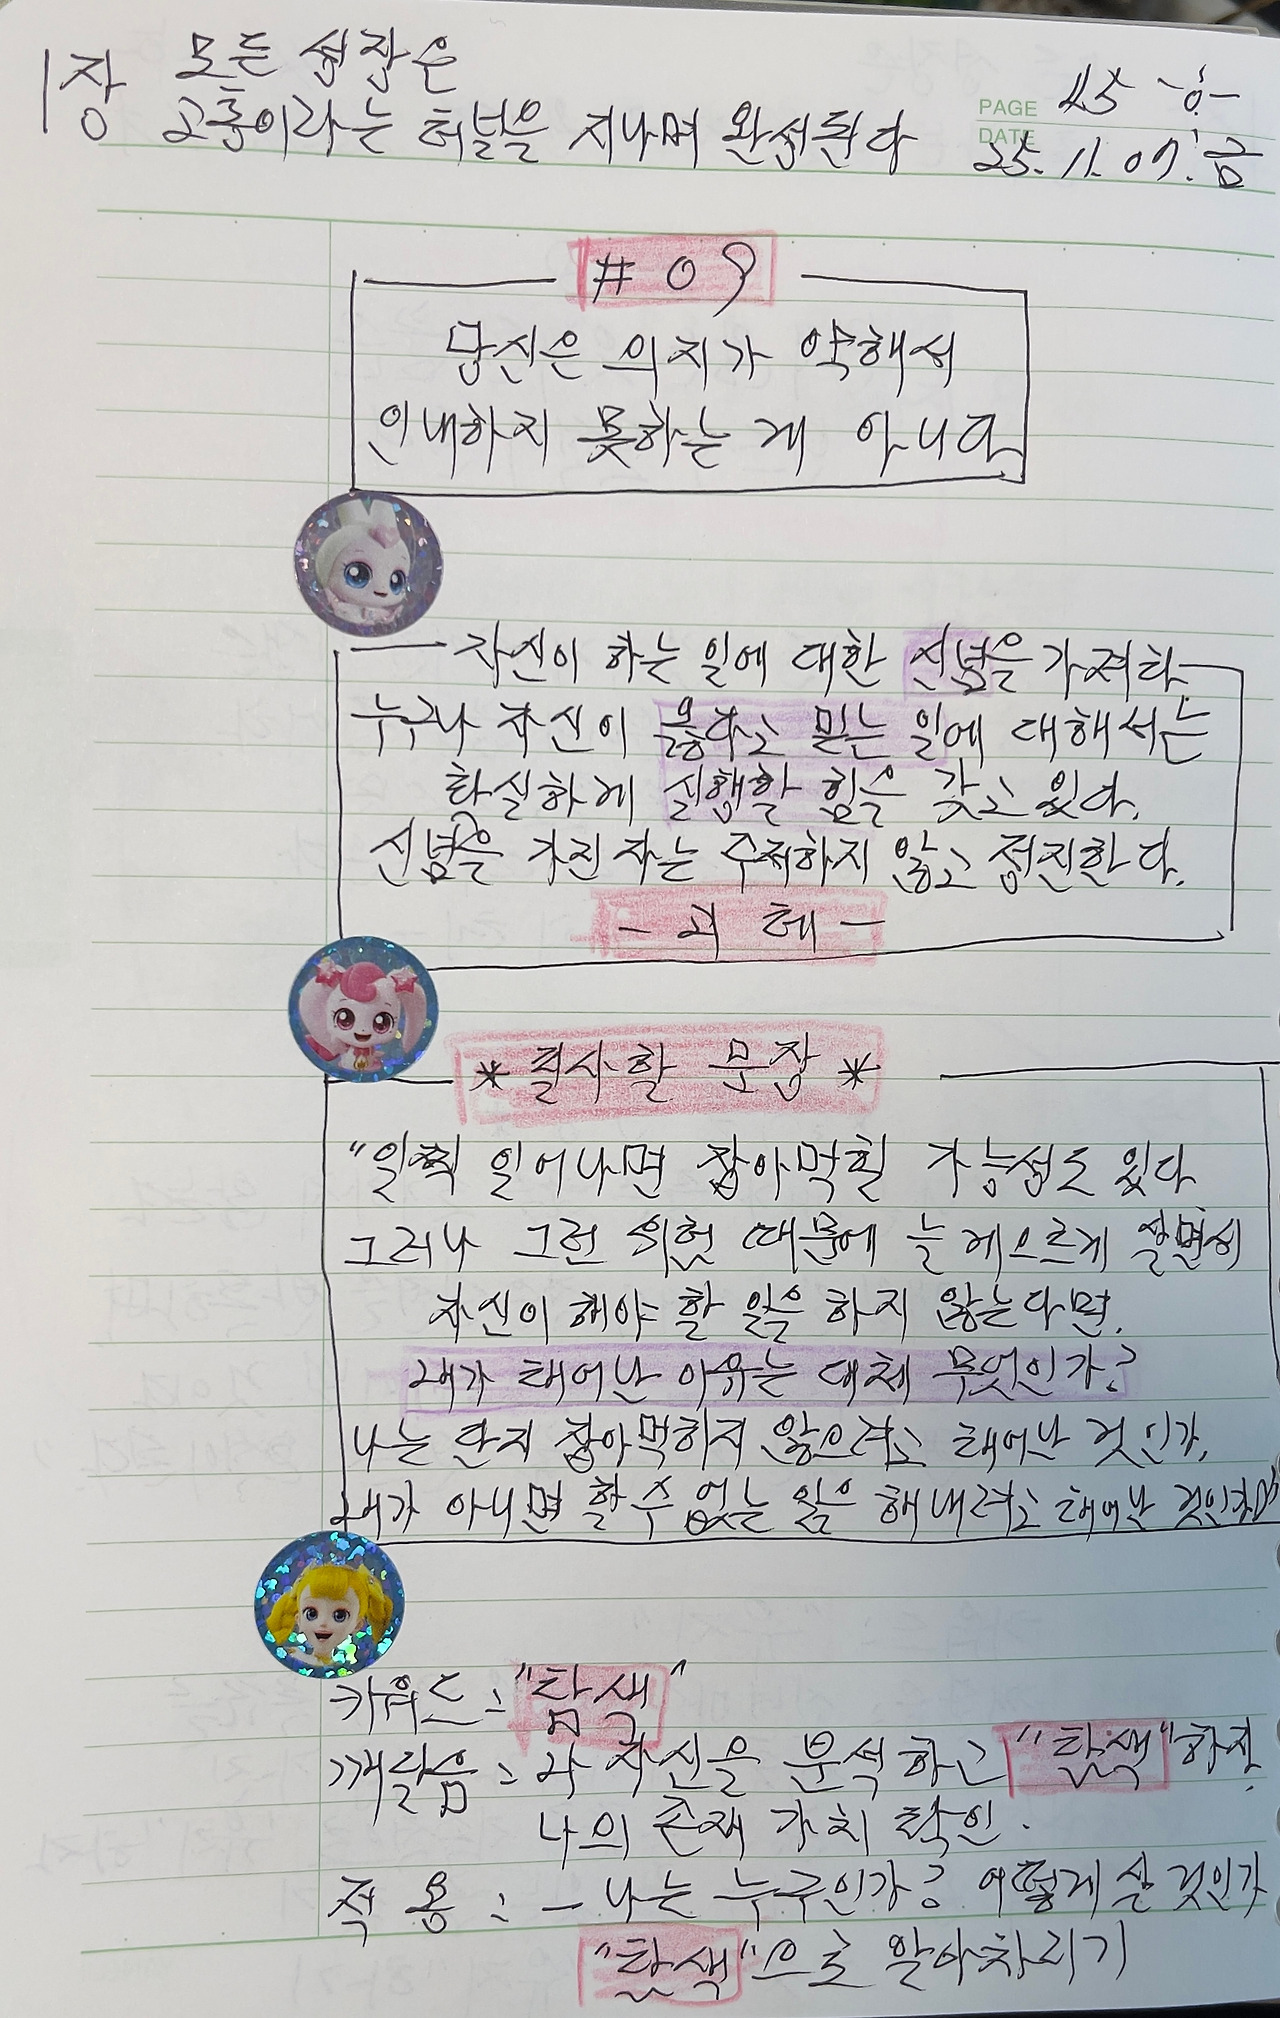 1장 모든 성장은
고통이라는 터널을 지나며 완성된다
PAGE 45
DATE 25. 11. 07. 금
# 09
당신은 의지가 약해서
인내하지 못하는 게 아니다
자신이 하는 일에 대한 신념을 가져라
누구나 자신이 옳다고 믿는 일에 대해서는
확실하게 실행할 힘을 갖고 있다.
신념을 가진 자는 주저하지 않고 정진한다.
- 괴테 -
* 필사할 문장 *
"일찍 일어나면 잡아먹힐 가능성도 있다
그러나 그런 위험 때문에 늘 게으르게 살면서
자신이 해야 할 일을 하지 않는다면,
내가 태어난 이유는 대체 무엇인가?
나는 단지 잡아먹히지 않으려고 태어난 것인가,
내가 아니면 할 수 없는 일을 해내려고 태어난 것인가?"
키워드 : "탐색"
깨달음 : 나 자신을 분석하고 "탐색"하자.
나의 존재 가치 확인.
적용 : - 나는 누구인가? 어떻게 살 것인가
"탐색"으로 알아차리기